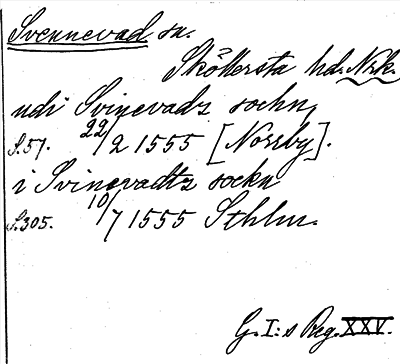 Svennevad sn.
Sköllersta hd. Nrk.
udi Svinevadz sochn,
S.57. 22/2 1555 [Norrby].
i Svinevadtz sockn
S.305. 10/7 1555 Sthlm.
G. I:s Reg. XXV.